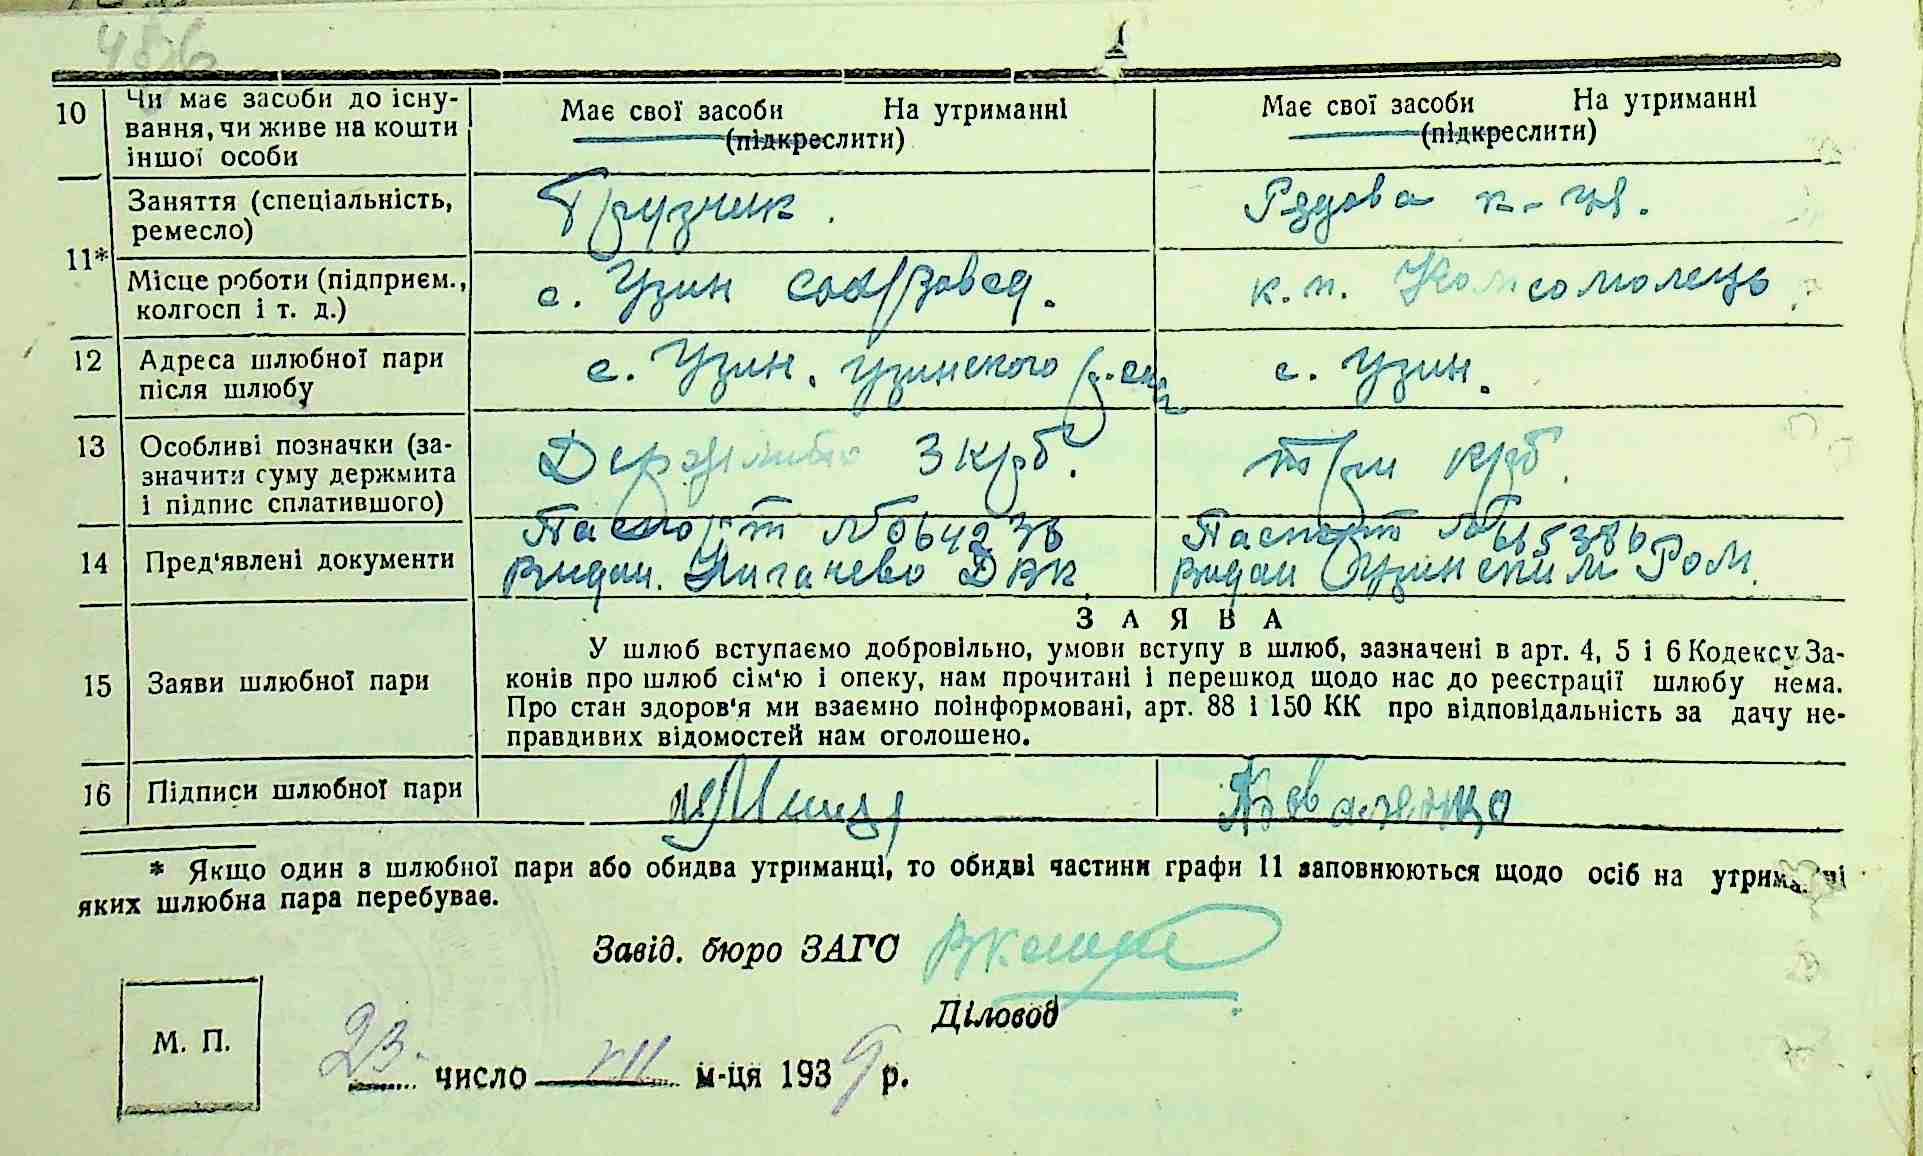 10 Чи має засоби до існу-
вання, чи живе на кошти
іншої особи
Має свої засоби На утриманні
(підкреслити)
Має свої засоби На утриманні
(підкреслити)
11*
Заняття (спеціальність,
ремесло)
Грузчик.
Рядова к-ця.
Місце роботи (підприєм.,
колгосп і т. д.)
с. Узин сах/завод.
к.п. Комсомолець
12 Адреса шлюбної пари
після шлюбу
с. Узин. Узинского
с. Узин.
13 Особливі позначки (за-
значити суму держмита
і підпис сплатившого)
Держмито 3 крб.
три крб.
14 Пред'явлені документи
Паспорт №
Видан. ДВК
Паспорт №
Видан Узинским РОМ.
З А Я В А
15 Заяви шлюбної пари
У шлюб вступаємо добровільно, умови вступу в шлюб, зазначені в арт. 4, 5 і 6 Кодексу За-
конів про шлюб сім'ю і опеку, нам прочитані і перешкод щодо нас до реєстрації шлюбу нема.
Про стан здоров'я ми взаємно поінформовані, арт. 88 і 150 КК про відповідальність за дачу не-
правдивих відомостей нам оголошено.
16 Підписи шлюбної пари
* Якщо один з шлюбної пари або обидва утриманці, то обидві частини графи 11 заповнюються щодо осіб на
яких шлюбна пара перебуває.
Завід. бюро ЗАГС
Діловод
М. П.
23 число VII м-ця 1939 р.